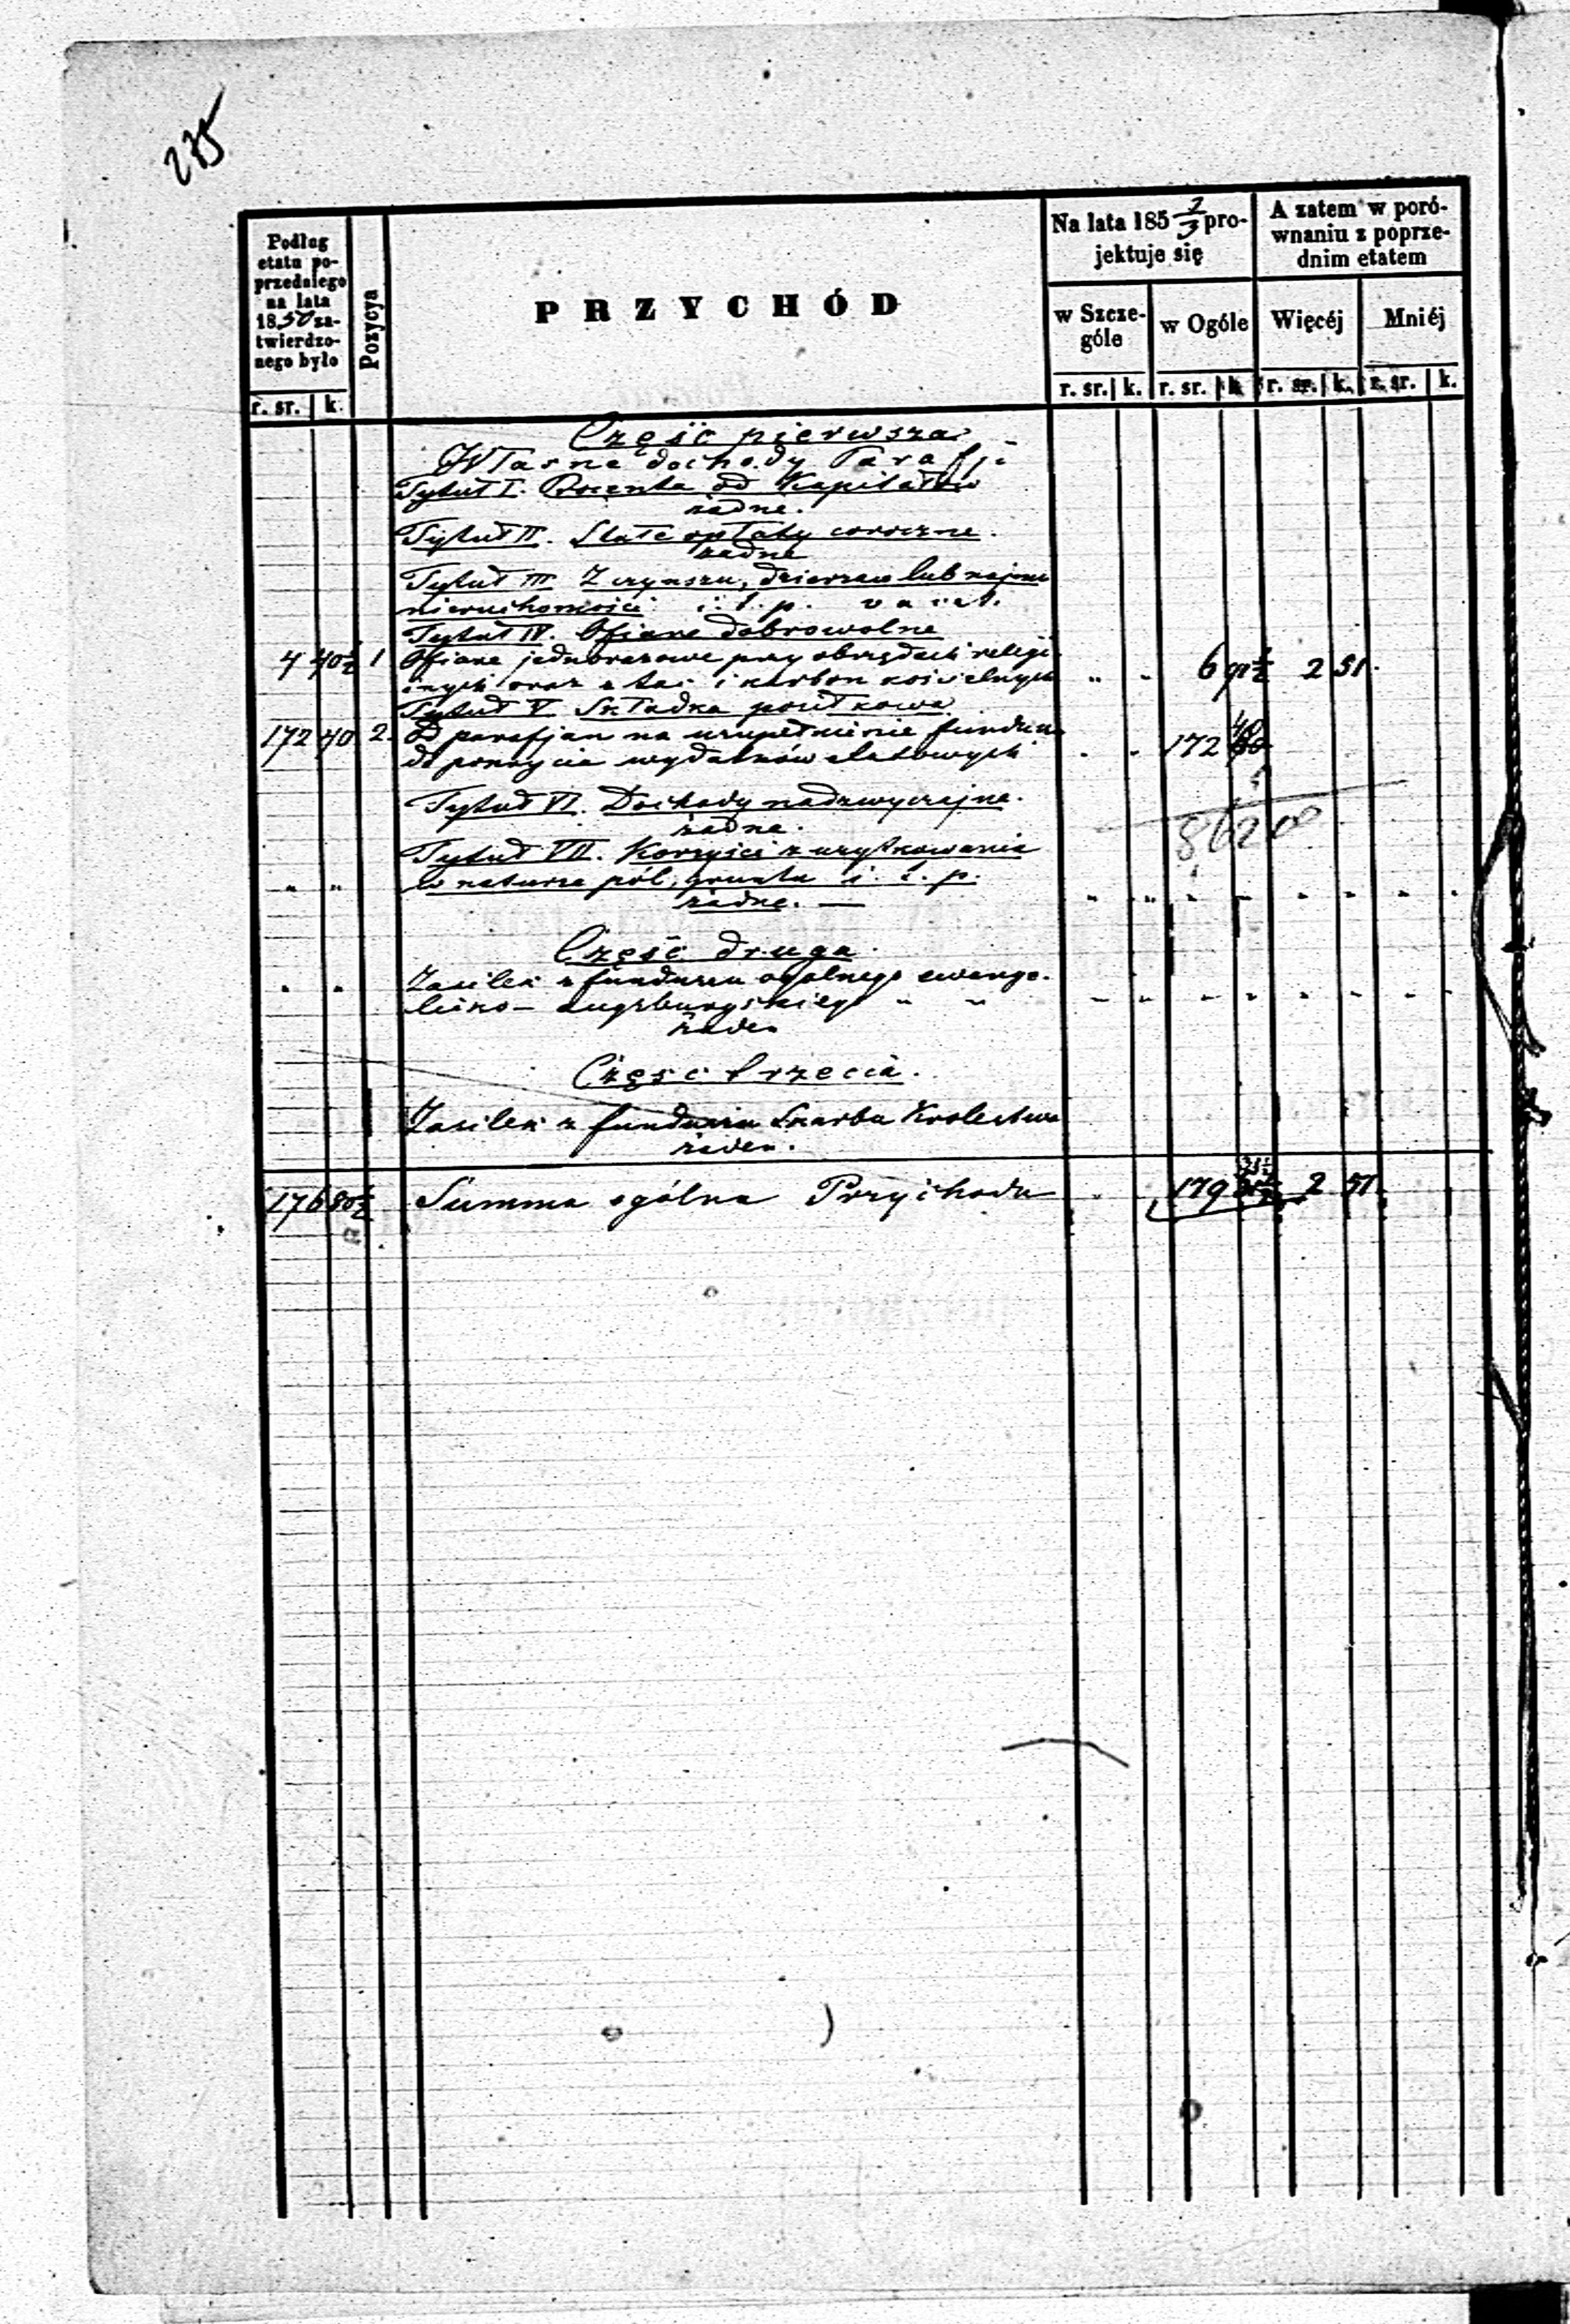 275
Podług etatu poprzedniego na lata 1850 zatwierdzonego było
Pozycya
PRZYCHÓD
Na lata 185 2/3 projektuje się
A zatem w porównaniu z poprzednim etatem
w Szczególe
w Ogóle
Więcéj
Mniéj
r. sr. | k. r. sr. | k. r. sr. | k. r. sr. | k. r. sr. | k.
Część pierwsza
Własne dochody Parafji
Tytuł I. Procenta od Kapitałów
żadne.
Tytuł II. Stałe opłaty coroczne.
żadne
Tytuł III Z czynszu, dzierzaw lub najmu
nieruchomości i. t. p. vacat.
Tytuł IV. Ofiary dobrowolne
4 40½ 1 Ofiary jednorazowe przy obrzędach religij
inych oraz z tac i karbon kościelnych " " 6 91½ 2 51
Tytuł V Składka posiłkowa
172 40 2. Od parafjan na uzupełnienie fundusz
do pokrycia wydatków etatowych " " 172 40
Tytuł VI. Dochody nadzwyczajne.
żadne.
Tytuł VII. Korzyści z użytkowania
" " w naturze pól, gruntu i. t. p.
żadne. —
Część druga.
Zasiłek z funduszu ogólnego ewange-
licko-Augsburgskiego " "
żaden
Część trzecia.
Zasiłek z funduszu Skarbu Królestwa
żaden.
176 80½ Summa ogólna Przychodu 179 31½ 2 51